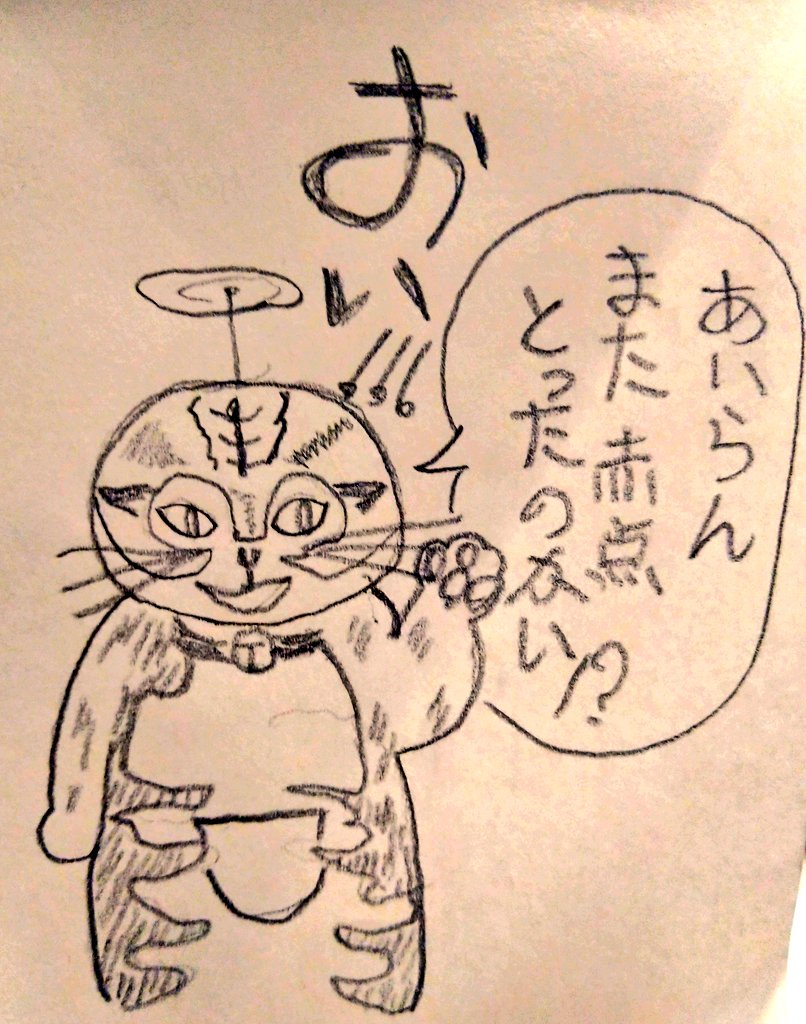 おい!!!
あいらん
また赤点
とったのかい!?